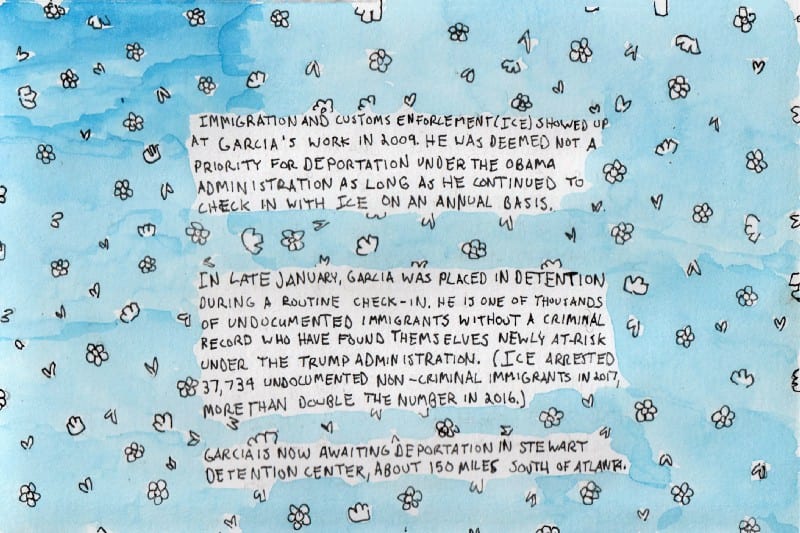 IMMIGRATION AND CUSTOMS ENFORCEMENT (ICE) SHOWED UP
AT GARCIA'S WORK IN 2009. HE WAS DEEMED NOT A
PRIORITY FOR DEPORTATION UNDER THE OBAMA
ADMINISTRATION AS LONG AS HE CONTINUED TO
CHECK IN WITH ICE ON AN ANNUAL BASIS.
IN LATE JANUARY, GARCIA WAS PLACED IN DETENTION
DURING A ROUTINE CHECK-IN. HE IS ONE OF THOUSANDS
OF UNDOCUMENTED IMMIGRANTS WITHOUT A CRIMINAL
RECORD WHO HAVE FOUND THEMSELVES NEWLY AT-RISK
UNDER THE TRUMP ADMINISTRATION. (ICE ARRESTED
37,734 UNDOCUMENTED NON-CRIMINAL IMMIGRANTS IN 2017,
MORE THAN DOUBLE THE NUMBER IN 2016.)
GARCIA IS NOW AWAITING DEPORTATION IN STEWART
DETENTION CENTER, ABOUT 150 MILES SOUTH OF ATLANTA.